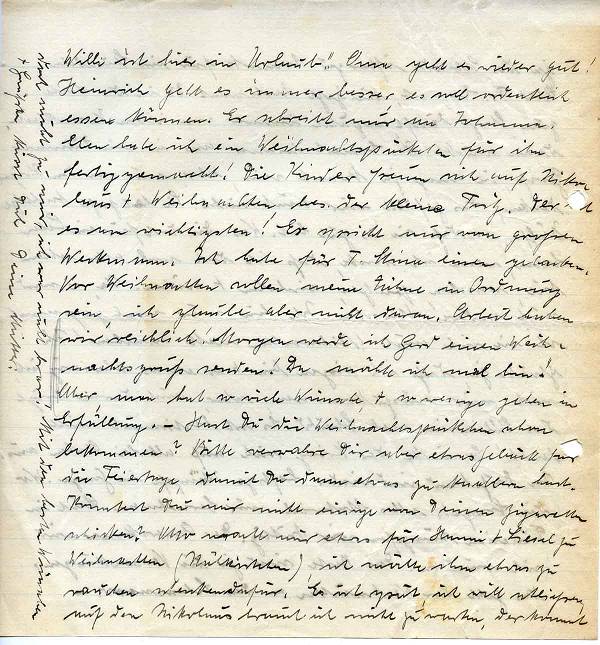 Willi ist hier in Urlaub!! Oma geht es wieder gut!
Heinrich geht es immer besser es soll ordentlich
essen können. Er schreibt nur an Johanna.
Eben habe ich ein Weihnachtspäckchen für ihn
fertiggemacht! Die Kinder freuen sich auf Niko
laus + Weihnachten bes. der kleine Fritz. Der
es am wichtigsten! Er spricht nur vom großen
Weckmann. Ich habe für T. Stina einen gebacken.
Vor Weihnachten sollen meine Zähne in Ordnung
sein ich glaube aber nicht daran. Arbeit haben
wir reichlich! Morgen werde ich Gerd einen Weih-
nachtsgruß senden! Da möchte ich mal hin!!
Aber man hat so viele Wünsche, + so wenige gehen in
Erfüllung. - Hast Du die Weihnachtspäckchen schon
bekommen? Bitte verwahre Dir aber etwas Gebäck für
die Feiertage, damit Du dann etwas zu knabbern hast.
Könntest Du mir nicht einige von Deinen Zigaretten
schicken? Otto macht mir etwas für Hanni + Liesel zu
Weihnachten ich möchte ihm etwas zu
rauchen schenken dafür. Es ist spät, ich will schließen,
auf den Nikolaus brauch ich nicht zu warten, der kommt
doch nicht zu mir, ich war nicht brav! Mit den besten Wünschen
+ Grüßen, küsst Dich Deine Mutter.